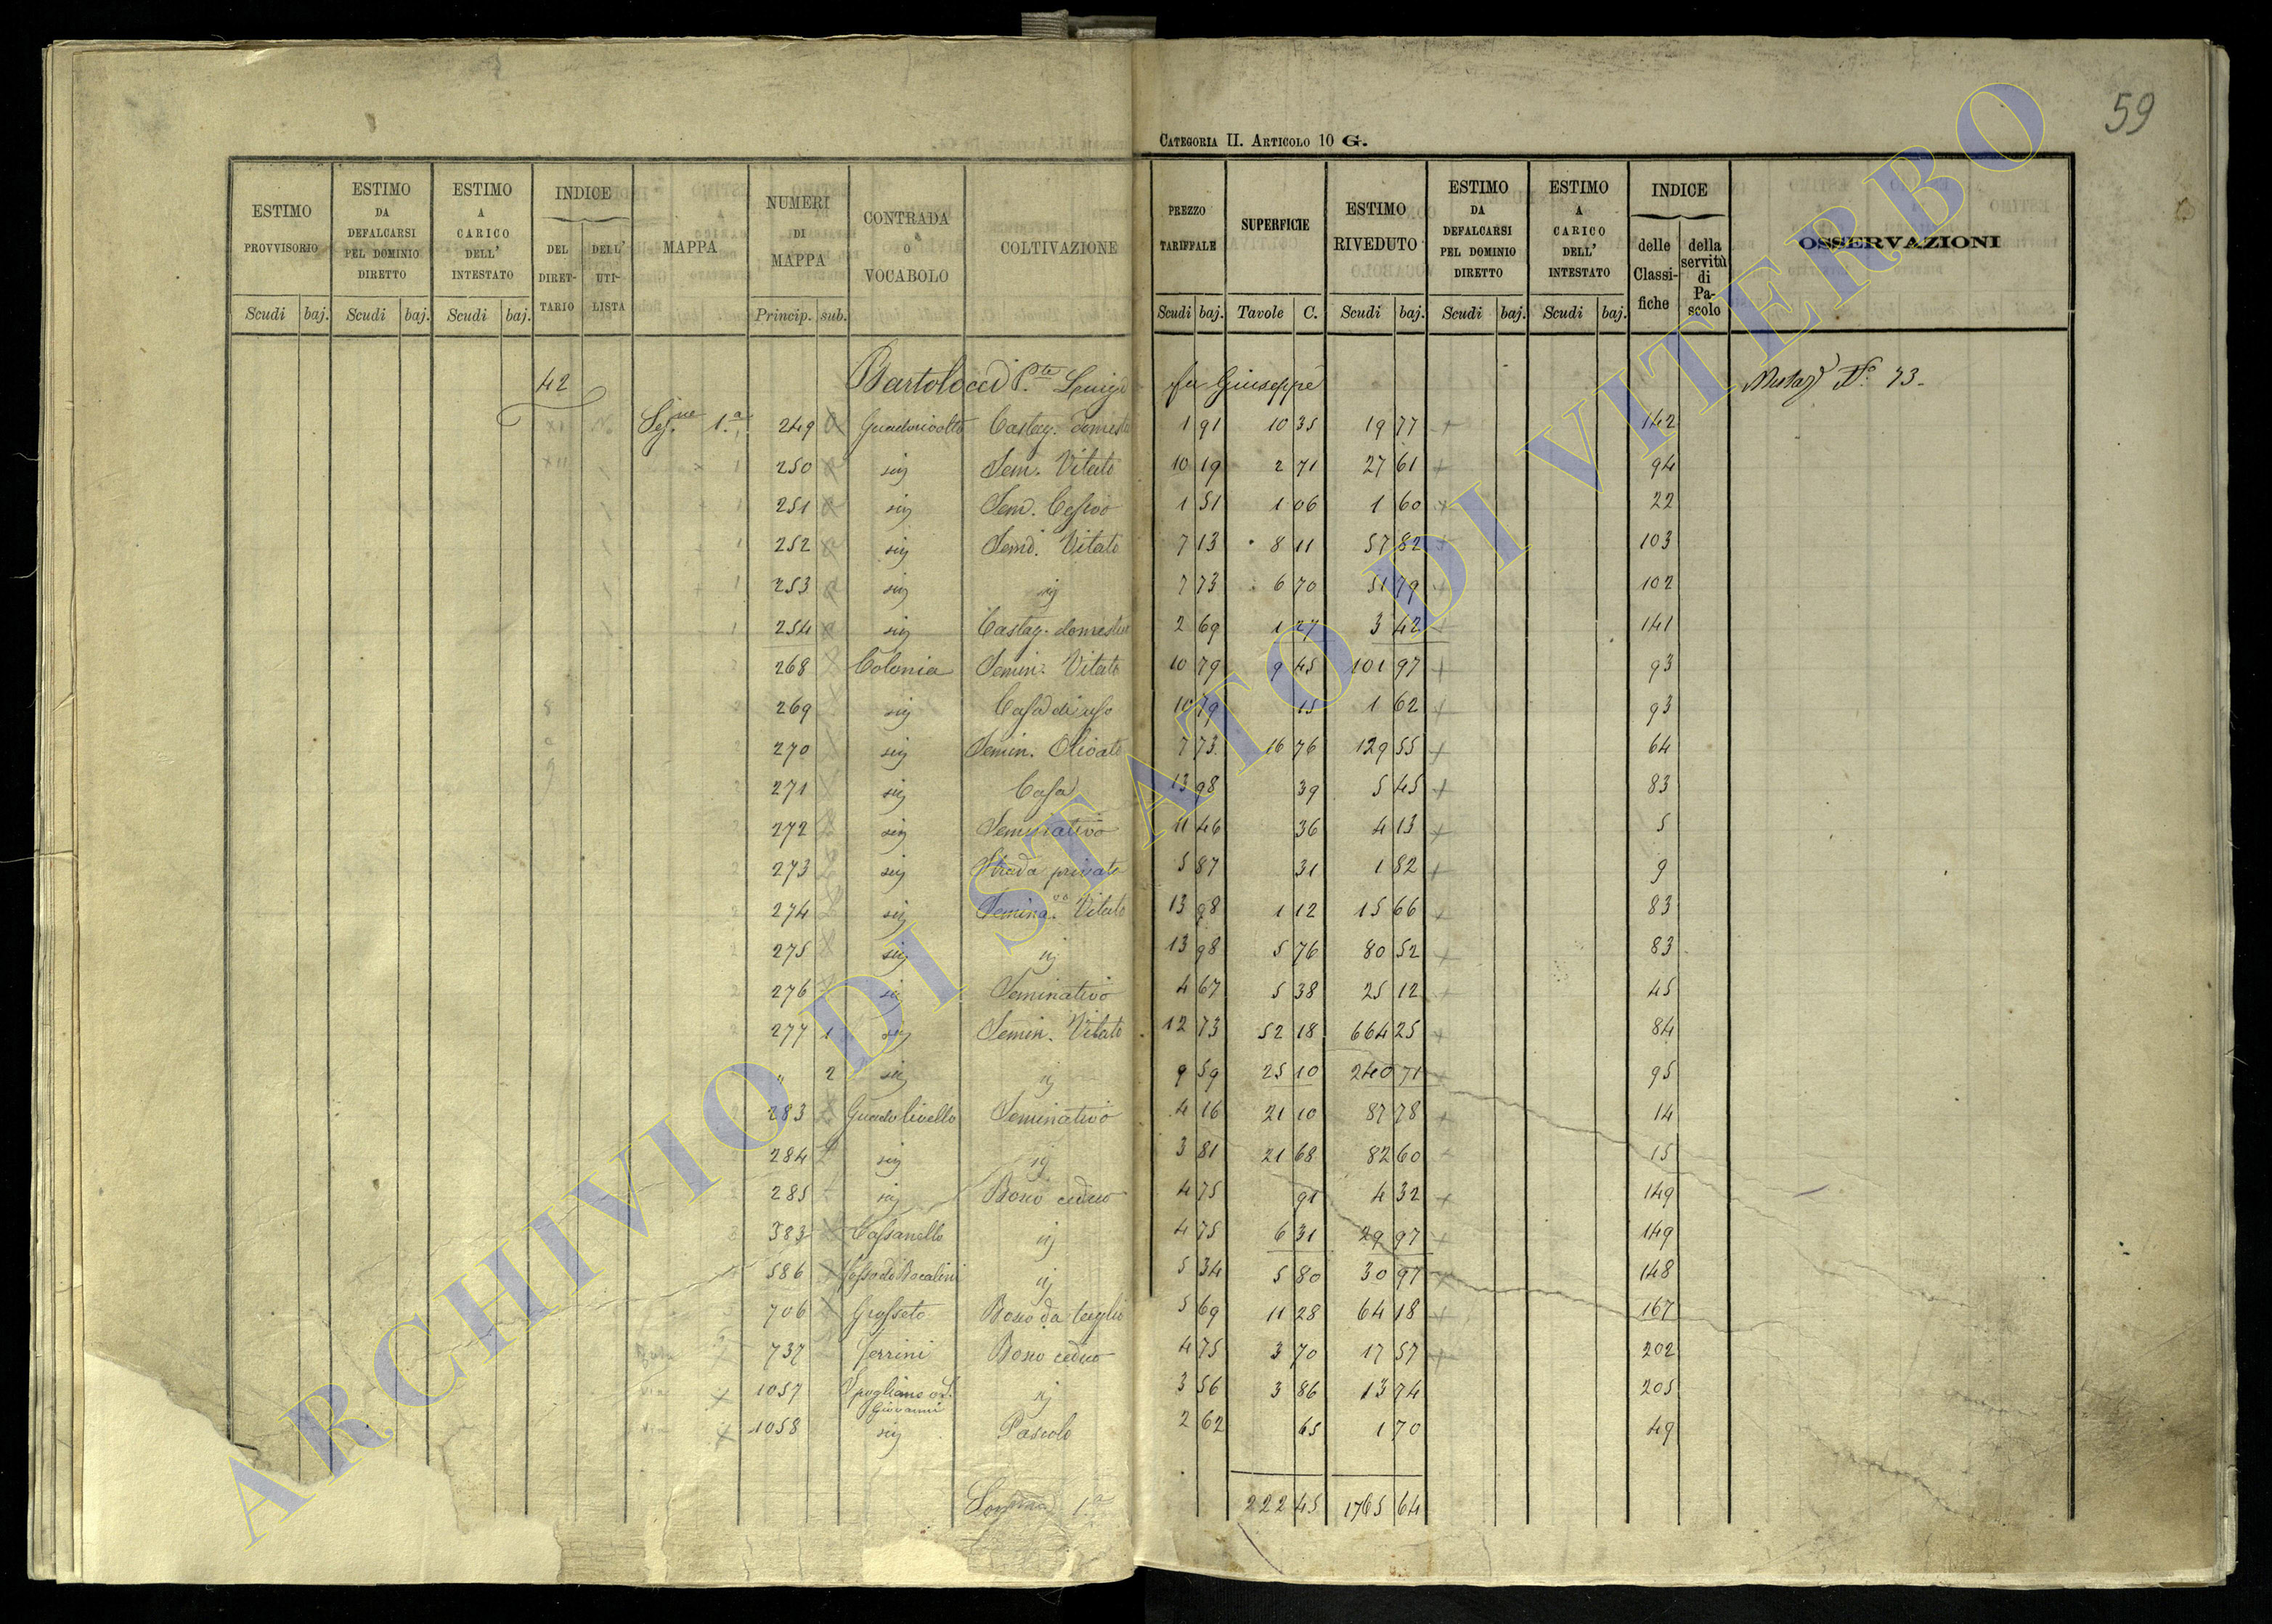 59
CATEGORIA II. ARTICOLO 10 G.
ESTIMO PROVVISORIO Scudi baj.
ESTIMO DA DEFALCARSI PEL DOMINIO DIRETTO Scudi baj.
ESTIMO A CARICO DELL' INTESTATO Scudi baj.
INDICE DEL DIRET-TARIO DELL' UTI-LISTA
MAPPA
NUMERI DI MAPPA Princip. sub.
CONTRADA O VOCABOLO
COLTIVAZIONE
PREZZO TARIFFALE Scudi baj.
SUPERFICIE Tavole C.
ESTIMO RIVEDUTO Scudi baj.
ESTIMO DA DEFALCARSI PEL DOMINIO DIRETTO Scudi baj.
ESTIMO A CARICO DELL' INTESTATO Scudi baj.
INDICE delle Classi-fiche della servitù di Pa-scolo
OSSERVAZIONI
42 Bartolocci Luigi fu Giuseppe N.º 73
1.a 249 Castag. domest 1 91 10 35 19 77 142
250 sig Sem. Vitato 10 19 2 71 27 61 94
251 sig Sem. 1 51 1 06 1 60 22
252 sig Sem. Vitato 7 13 8 11 57 82 103
253 sig ig 7 73 6 70 51 79 102
254 sig Castag. domestico 2 69 1 27 3 42 141
268 Colonia Semin. Vitato 10 79 9 45 101 97 93
269 sig Casa di uso 10 79 15 1 62 93
270 sig Semin. Olivato 7 73 16 76 129 55 64
271 sig Casa 13 98 39 5 45 83
272 sig Seminativo 11 46 36 4 13 5
273 sig Strada privata 5 87 31 1 82 9
274 sig Semina.vo Vitato 13 98 1 12 15 66 83
275 sig ig 13 98 5 76 80 52 83
276 sig Seminativo 4 67 5 38 25 12 45
277 1 sig Semin. Vitato 12 73 52 18 664 25 84
" 2 sig ig 9 59 25 10 240 71 95
283 Guadolivello Seminativo 4 16 21 10 87 78 14
284 sig ig 3 81 21 68 82 60 15
285 sig Bosco ceduo 4 75 91 4 32 149
383 Cassanello ig 4 75 6 31 29 97 149
586 Fosso di Bocalini ig 5 34 5 80 30 97 148
706 Grosseto Bosco da taglio 5 69 11 28 64 18 167
737 Ferrini Bosco ceduo 4 75 3 70 17 57 202
1057 Spogliano o S. Giovanni ig 3 56 3 86 13 74 205
1058 sig Pascolo 2 62 65 1 70 49
Somma 1.a 222 45 1765 64
ARCHIVIO DI STATO DI VITERBO